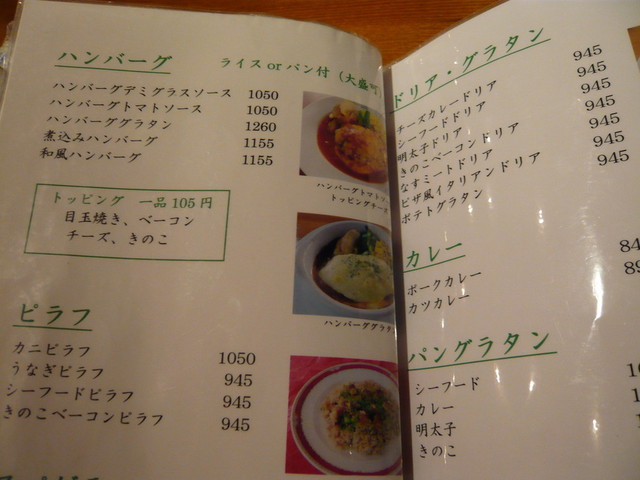 ハンバーグ ライス or パン付 (大盛可
ハンバーグデミグラスソース 1050
ハンバーグトマトソース 1050
ハンバーググラタン 1260
煮込みハンバーグ 1155
和風ハンバーグ 1155
トッピング 一品105円
目玉焼き、ベーコン
チーズ、きのこ
ハンバーグトマトソ
トッピングチーズ
ハンバーググラタ
ピラフ
カニピラフ 1050
うなぎピラフ 945
シーフードピラフ 945
きのこベーコンピラフ 945
ドリア・グラタン
チーズカレードリア 945
シーフードドリア 945
明太子ドリア 945
きのこベーコンドリア 945
なすミートドリア 945
ピザ風イタリアンドリア 945
ポテトグラタン 945
カレー
ポークカレー 84
カツカレー 89
パングラタン
シーフード
カレー
明太子
きのこ